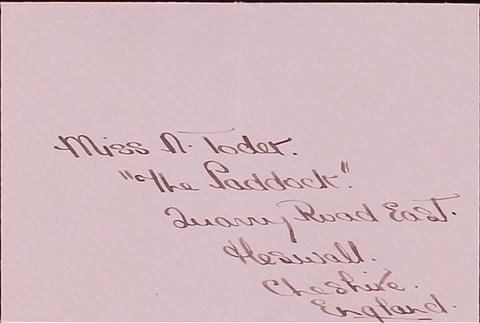 Miss N. Toder.
"The Paddock".
Quarry Road East.
Heswall.
Cheshire.
England.